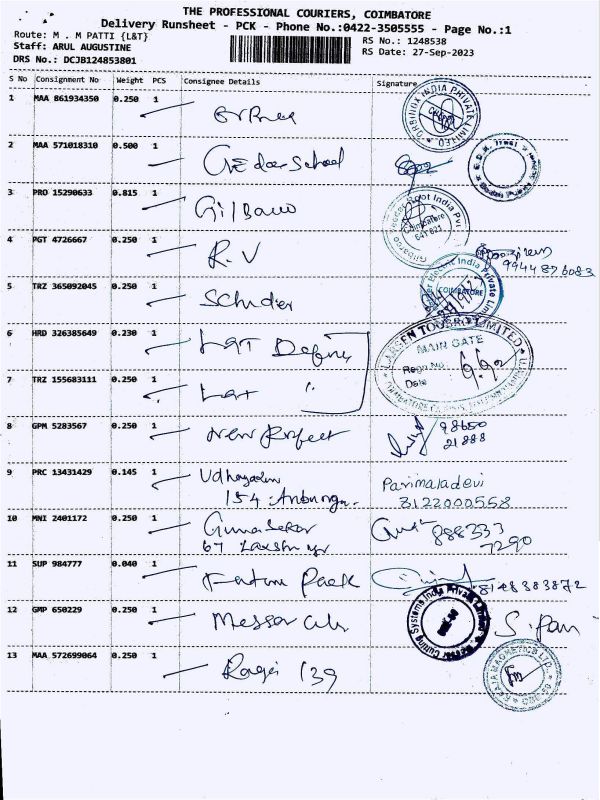 THE PROFESSIONAL COURIERS, COIMBATORE
Delivery Runsheet - PCK - Phone No.:0422-3505555 - Page No.:1
Route: M . M PATTI {L&T}
RS No.: 1248538
Staff: ARUL AUGUSTINE
RS Date: 27-Sep-2023
DRS No.: DCJB124853801
S No Consignment No Weight PCS Consignee Details Signature
1 MAA 861934350 0.250 1
ORBINOX INDIA PRIVATE LIMITED
2 MAA 571018310 0.500 1 School
3 PRO 15290633 0.815 1 Gilbarco
Gilbarco Veeder Root India Pvt
Coimbatore
641 021
4 PGT 4726667 0.250 1 R.V
9944876083
5 TRZ 365092045 0.250 1
Electric India Private
COIMBATORE
6 HRD 326385649 0.230 1 L&T
LARSEN TOUBRO LIMITED
MAIN GATE
Regn No
Date
7 TRZ 155683111 0.250 1 L&T "
8 GPM 5283567 0.250 1 New
98650
21888
9 PRC 13431429 0.145 1 Udhayam
154
Parimaladevi
8122000558
10 MNI 2401172 0.250 1 Gunasekar
67
888333
7290
11 SUP 984777 0.040 1
8148383872
12 GMP 650229 0.250 1 Messer
Messer Cutting Systems India Private Limited
S.
13 MAA 572699064 0.250 1 139
MAGNETICS LTD.